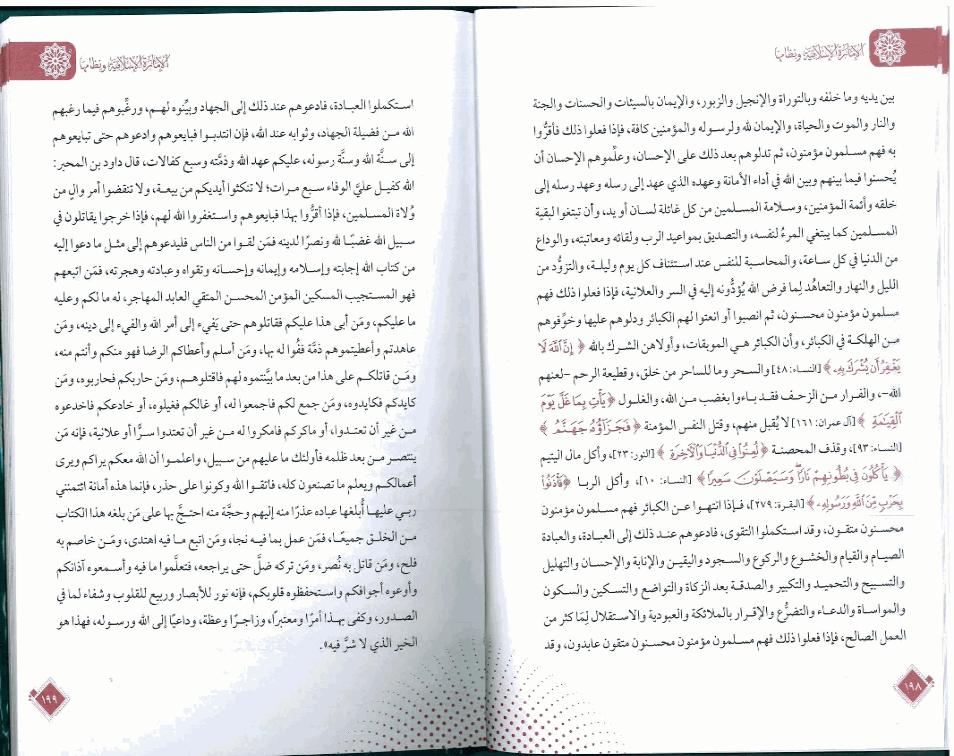 الإمارة الإسلامية ونظامها
بين يديه وما خلفه وبالتوراة والإنجيل والزبور، والإيمان بالسيئات والحسنات والجنة
والنار والموت والحياة، والإيمان لله ولرسوله وللمؤمنين كافة، فإذا فعلوا ذلك فأقرُّوا
به فهم مسلمون مؤمنون، ثم تدلوهم بعد ذلك على الإحسان، وعلِّموهم الإحسان أن
يُحسنوا فيما بينهم وبين الله في أداء الأمانة وعهده الذي عهد إلى رسله وعهد رسله إلى
خلقه وأئمة المؤمنين، وسلامة المسلمين من كل غائلة لسان أو يد، وأن تبتغوا لبقية
المسلمين كما يبتغي المرءُ لنفسه، والتصديق بمواعيد الرب ولقائه ومعاتبته، والوداع
من الدنيا في كل ساعة، والمحاسبة للنفس عند استئناف كل يوم وليلة، والتزوُّد من
الليل والنهار والتعاهُد لِما فرض الله يُؤدُّونه إليه في السر والعلانية، فإذا فعلوا ذلك فهم
مسلمون مؤمنون محسنون، ثم انصبوا أو انعتوا لهم الكبائر ودلوهم عليها وخوِّفوهم
من الهلكة في الكبائر، وأن الكبائر هي الموبقات، وأولاهن الشرك بالله ﴿إِنَّ ٱللَّهَ لَا
يَغْفِرُ أَن يُشْرَكَ بِهِۦ﴾ [النساء: ٤٨] والسحر وما للساحر من خلق، وقطيعة الرحم -لعنهم
الله-، والفرار من الزحف فقد باءوا بغضب من الله، والغلول ﴿يَأْتِ بِمَا غَلَّ يَوْمَ
ٱلْقِيَٰمَةِ﴾ [آل عمران: ١٦١] لا يُقبل منهم، وقتل النفس المؤمنة ﴿فَجَزَآؤُهُۥ جَهَنَّمُ﴾
[النساء: ٩٣]، وقذف المحصنة ﴿لُعِنُوا۟ فِى ٱلدُّنْيَا وَٱلْءَاخِرَةِ﴾ [النور: ٢٣]، وأكل مال اليتيم
﴿يَأْكُلُونَ فِى بُطُونِهِمْ نَارًا وَسَيَصْلَوْنَ سَعِيرًا﴾ [النساء: ١٠]، وأكل الربا ﴿فَأْذَنُوا۟
بِحَرْبٍ مِّنَ ٱللَّهِ وَرَسُولِهِۦ﴾ [البقرة: ٢٧٩]، فإذا انتهوا عن الكبائر فهم مسلمون مؤمنون
محسنون متقون، وقد استكملوا التقوى، فادعوهم عند ذلك إلى العبادة، والعبادة
الصيام والقيام والخشوع والركوع والسجود واليقين والإنابة والإحسان والتهليل
والتسبيح والتحميد والتكبير والصدقة بعد الزكاة والتواضع والتسكين والسكون
والمواساة والدعاء والتضرُّع والإقرار بالملائكة والعبودية والاستقلال لِمَا كثر من
العمل الصالح، فإذا فعلوا ذلك فهم مسلمون مؤمنون محسنون متقون عابدون، وقد
١٩٨
الإمارة الإسلامية ونظامها
استكملوا العبادة، فادعوهم عند ذلك إلى الجهاد وبيِّنوه لهم، ورغِّبوهم فيما رغبهم
الله من فضيلة الجهاد، وثوابه عند الله، فإن انتدبوا فبايعوهم وادعوهم حتى تبايعوهم
إلى سنَّة الله وسنَّة رسوله، عليكم عهد الله وذمَّته وسبع كفالات، قال داود بن المحبر:
الله كفيل عليَّ الوفاء سبع مرات؛ لا تنكثوا أيديكم من بيعة، ولا تنقضوا أمر والٍ من
وُلاة المسلمين، فإذا أقرُّوا بهذا فبايعوهم واستغفروا الله لهم، فإذا خرجوا يقاتلون في
سبيل الله غضبًا لله ونصرًا لدينه فمَن لقوا من الناس فليدعوهم إلى مثل ما دعوا إليه
من كتاب الله إجابته وإسلامه وإيمانه وإحسانه وتقواه وعبادته وهجرته، فمَن اتبعهم
فهو المستجيب المسكين المؤمن المحسن المتقي العابد المهاجر، له ما لكم وعليه
ما عليكم، ومَن أبى هذا عليكم فقاتلوهم حتى يَفيء إلى أمر الله والفيء إلى دينه، ومَن
عاهدتم وأعطيتموهم ذمَّة ففُوا له بها، ومَن أسلم وأعطاكم الرضا فهو منكم وأنتم منه،
ومَن قاتلكم على هذا من بعد ما بيَّنتموه لهم فاقتلوهم، ومَن حاربكم فحاربوه، ومَن
كايدكم فكايدوه، ومَن جمع لكم فاجمعوا له، أو غالكم فغيلوه، أو خادعكم فاخدعوه
من غير أن تعتدوا، أو ماكركم فامكروا له من غير أن تعتدوا سرًّا أو علانية، فإنه مَن
ينتصر من بعد ظلمه فأولئك ما عليهم من سبيل، واعلموا أن الله معكم يراكم ويرى
أعمالكم ويعلم ما تصنعون كله، فاتقوا الله وكونوا على حذر، فإنما هذه أمانة ائتمنني
ربي عليها أُبلغها عباده عذرًا منه إليهم وحجَّة منه احتجَّ بها على مَن بلغه هذا الكتاب
من الخلق جميعًا، فمَن عمل بما فيه نجا، ومَن اتبع ما فيه اهتدى، ومَن خاصم به
فلح، ومَن قاتل به نُصر، ومَن تركه ضلَّ حتى يراجعه، فتعلَّموا ما فيه وأسمعوه آذانكم
وأوعوه أجوافكم واستحفظوه قلوبكم، فإنه نور للأبصار وربيع للقلوب وشفاء لما في
الصدور، وكفى بهذا أمرًا ومعتبرًا، وزاجرًا وعظة، وداعيًا إلى الله ورسوله، فهذا هو
الخير الذي لا شرَّ فيه».
١٩٩